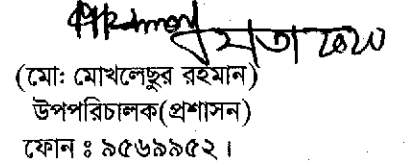 (মো: মোখলেছুর রহমান)
উপপরিচালক(প্রশাসন)
ফোন ঃ ৯৫৬৯৯৫২।